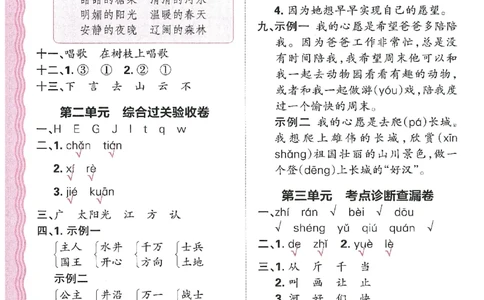 明媚的阳光 温暖的春天
安静的夜晚 酸甜的果园
十一、唱歌 在树枝上唱歌
十二、1.③ ① 2.② ①
十三、下 言 去 山 云 不
第二单元 综合过关验收卷
一、H E G J l t q w
二、1.chǎn tián
√ √
2.xí rè
√ √
3.jié kuān
√ √
三、广 太阳光 江 方 认
四、1.示例一
主人 水井 千万 士兵
国王 开心 方向 土地
示例二
公主 井沿 万一 战士
4.因为她想早早实现自己的愿望。
九、示例一 我的心愿是希望爸爸多陪陪
我。因为爸爸工作非常忙,总是没
有时间陪我,我希望周末他可以和
我一起去动物园看看有趣的动物,
或者和我一起做游(yóu)戏,陪我度
过一个愉快的周末。
示例二 我的心愿是去爬(pá)长城。
我想爬上雄伟的长城,欣赏(xīn
shǎng)祖国壮丽的山川景色,做一
个登(dēng)上长城的“好汉”。
第三单元 考点诊断查漏卷
一、zhí rán √ bèi √ dòu
√ shéng yǔ qiú quán √
二、1.de zhǐ 2.yuè lè
√ √ √ √
三、1.从 斤 千 当
2.叫 画 让 止